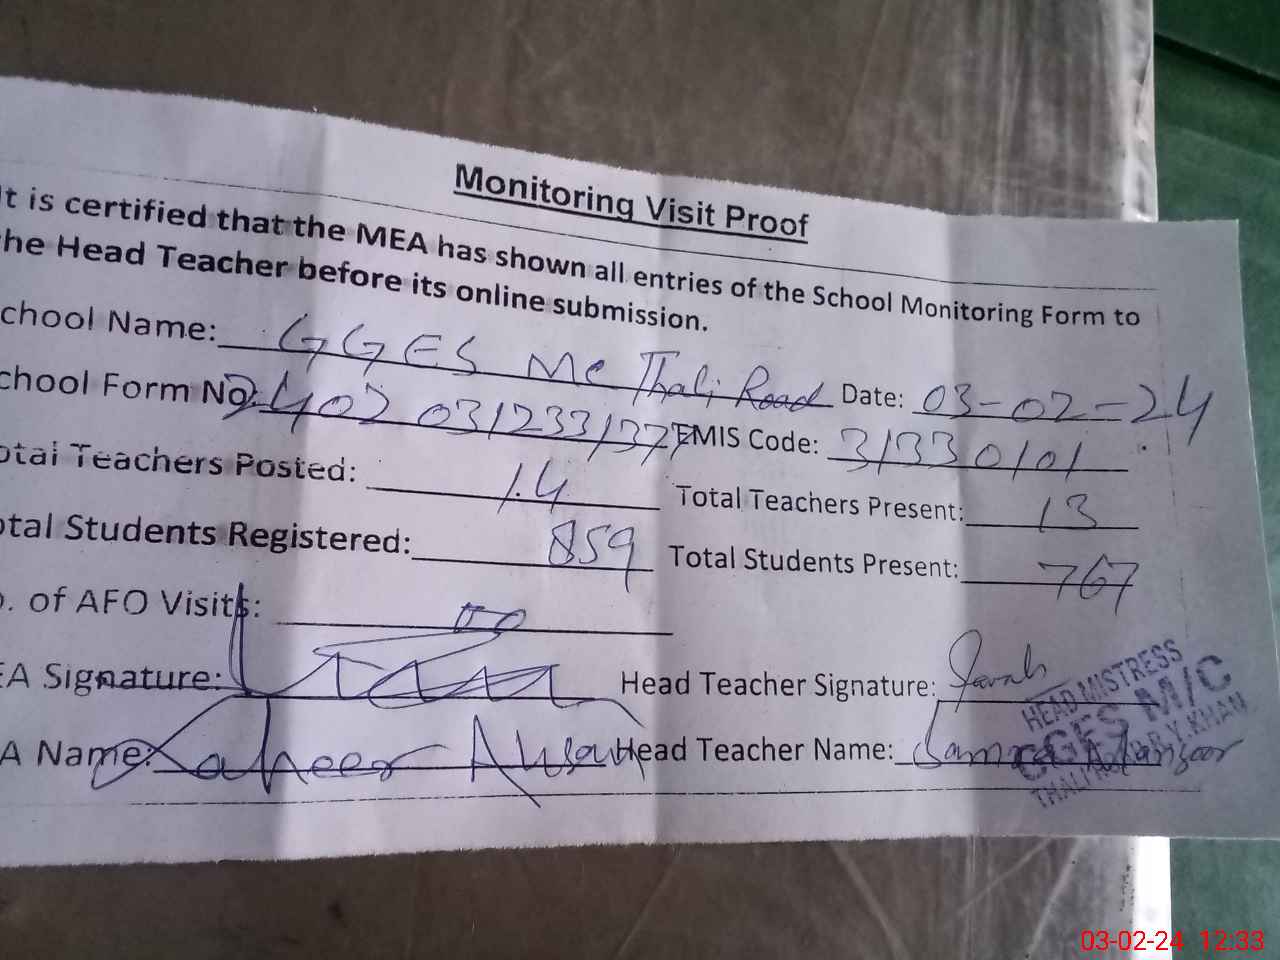 Monitoring Visit Proof
It is certified that the MEA has shown all entries of the School Monitoring Form to
he Head Teacher before its online submission.
chool Name: GGES MC Thali Road Date: 03-02-24
chool Form No: 2402 031233137 EMIS Code: 31330101
otal Teachers Posted: 14 Total Teachers Present: 13
otal Students Registered: 859 Total Students Present: 767
o. of AFO Visits: 00
EA Signature: Head Teacher Signature:
A Name: Zaheer Head Teacher Name:
HEAD MISTRESS
GGES M/C
THALI R.Y.KHAN
03-02-24 12:33